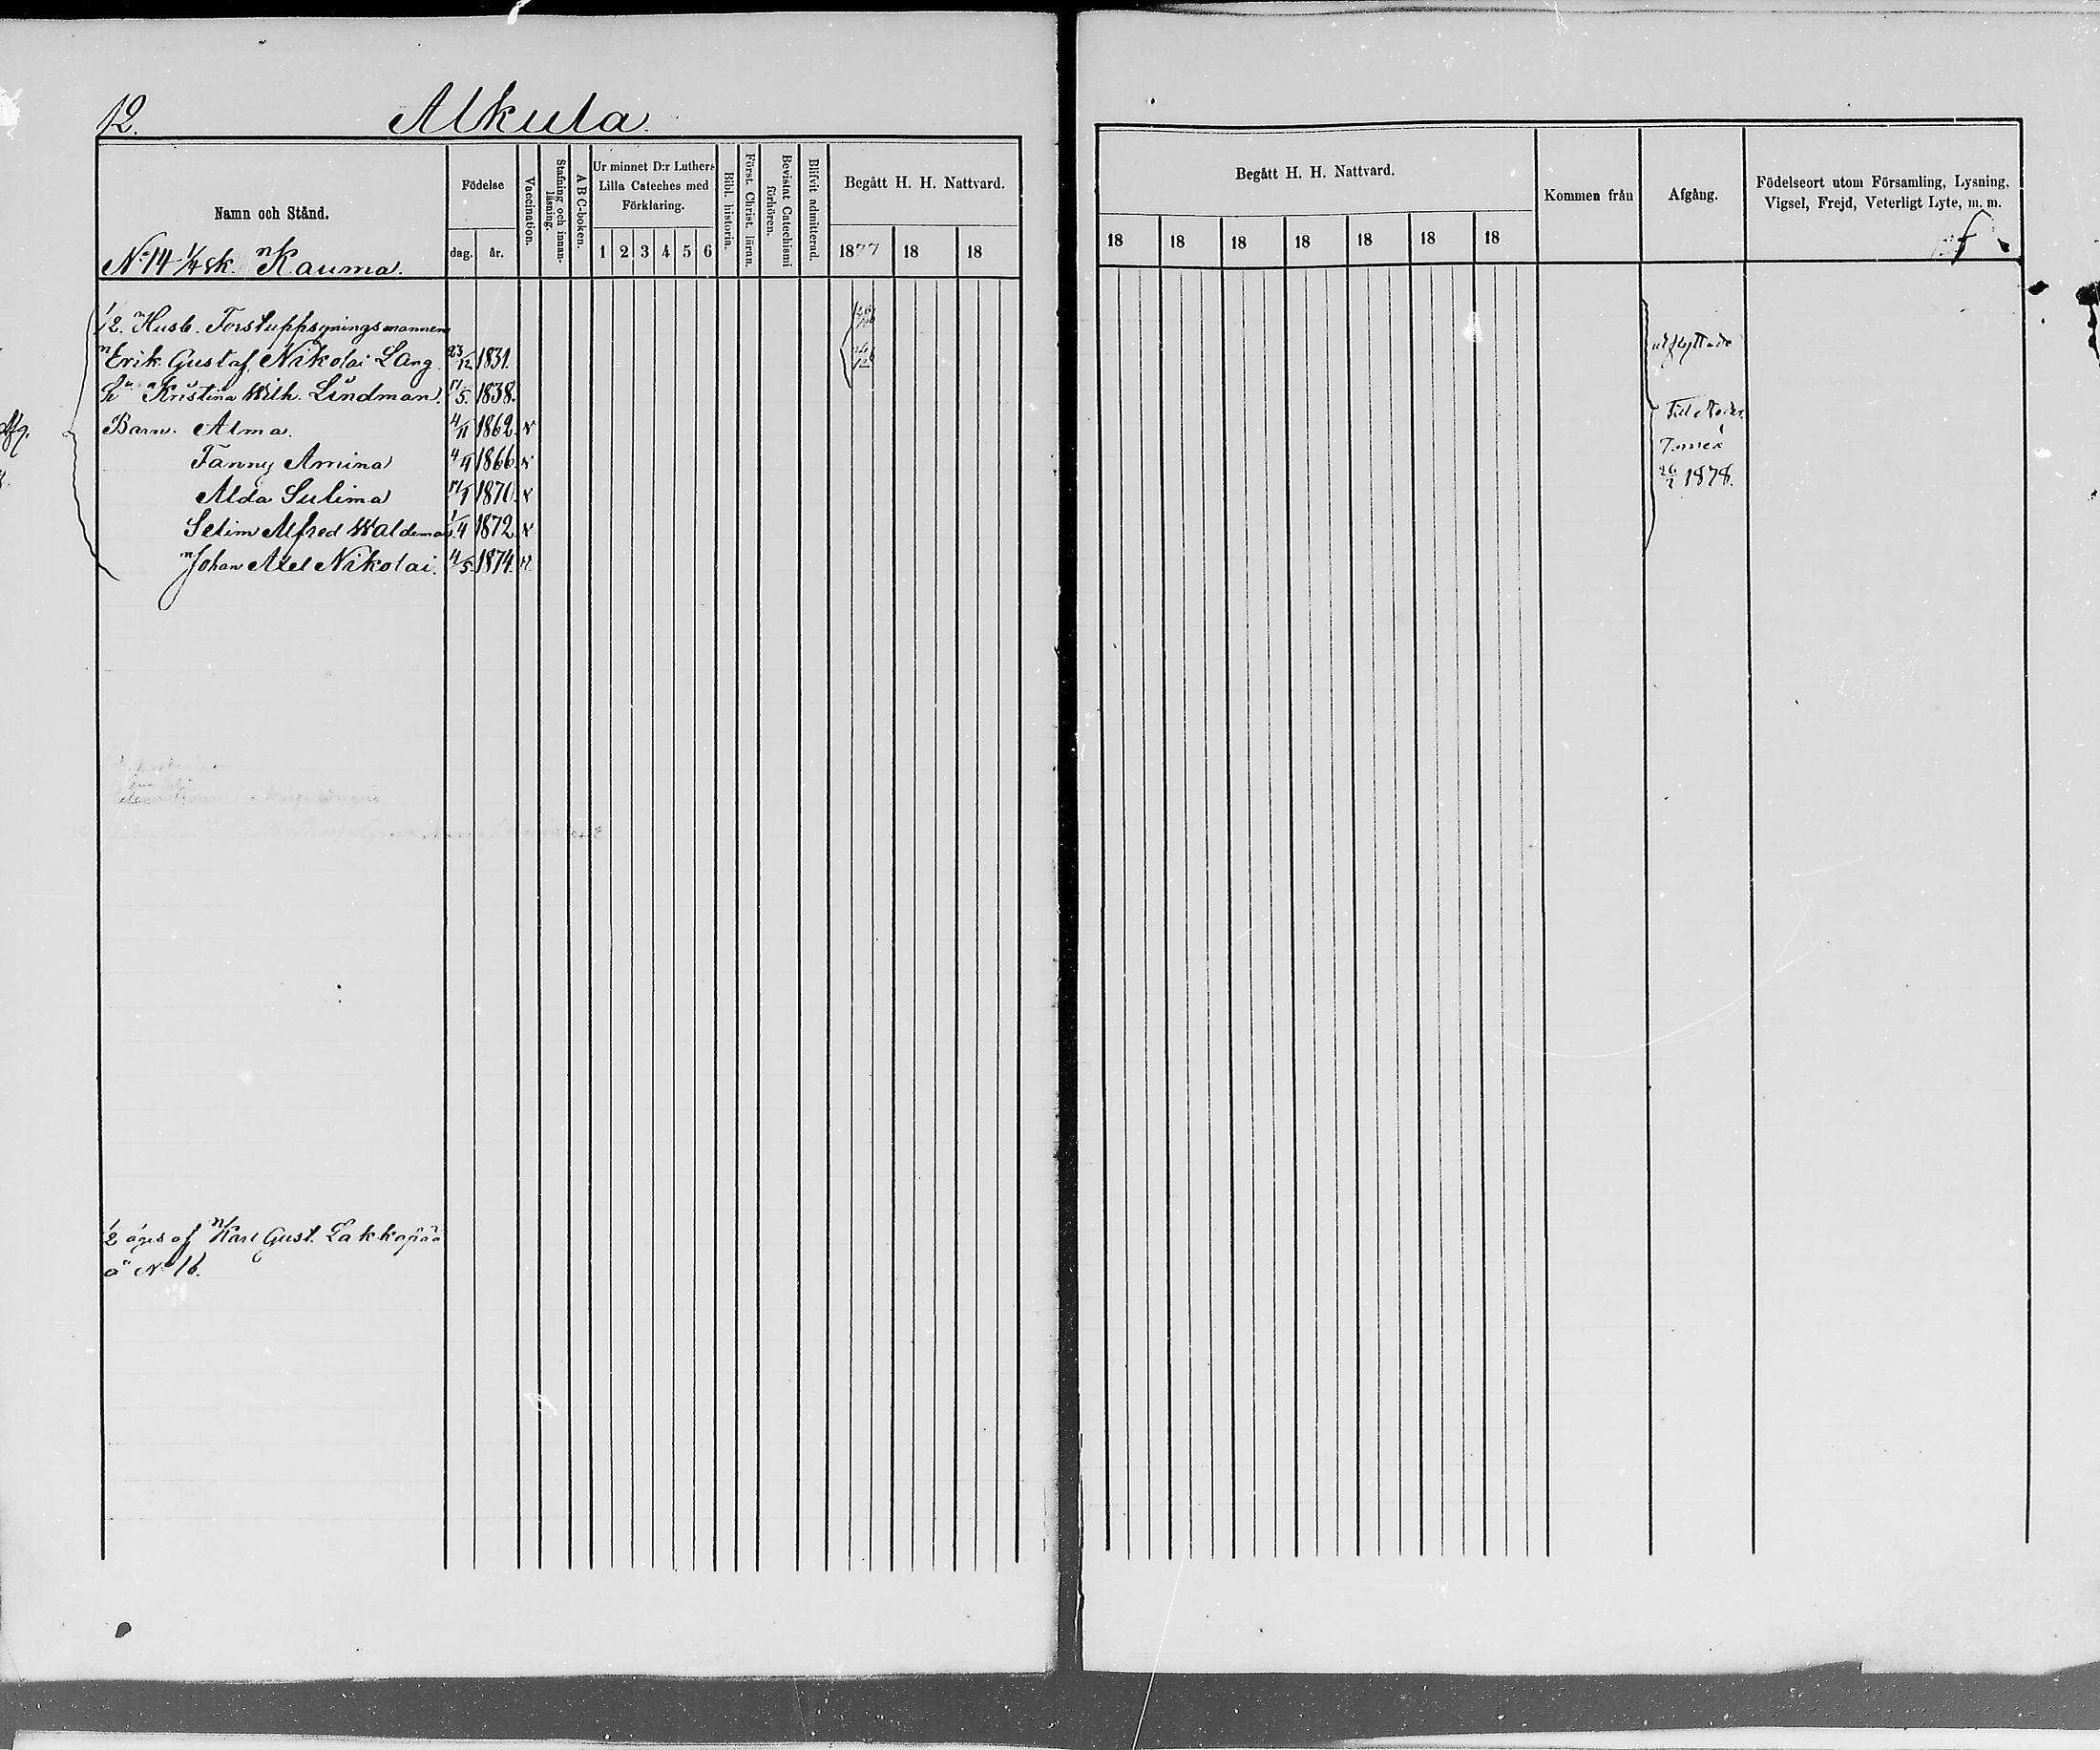 12.
Alkula.
Namn och Stånd.
Födelse
dag.
år.
Vaccination.
Stafning och innan-
läsning.
A B C-boken.
Ur minnet D:r Luthers
Lilla Cateches med
Förklaring.
1 2 3 4 5 6
Bibl. historia.
Först. Christ. läran.
Bevistat Catechismi
förhören.
Blifvit admitterad.
Begått H. H. Nattvard.
1877 18 18
No 14 1/4 sk. Kauma.
1/2. Husb. Forstuppsyningsmannen
Erik Gustaf Nikolai Lang 23/12 1831.
h Kristina Wilh. Lindman. 17/5 1838.
Barn. Alma. 4/11 1862
Fanny Amina 4/4 1866
Alda Sulima 17/1 1870
Selim Alfred Waldemar 1/4 1872
Johan Axel Nikolai. 4/5 1874
1/2 äges af Karl Gust. Lakkapää
å No 16.
Begått H. H. Nattvard.
18 18 18 18 18 18 18
Kommen från
Afgång.
Födelseort utom Församling, Lysning,
Vigsel, Frejd, Veterligt Lyte, m. m.
utflyttade
Till Neder
Torneå
1878.